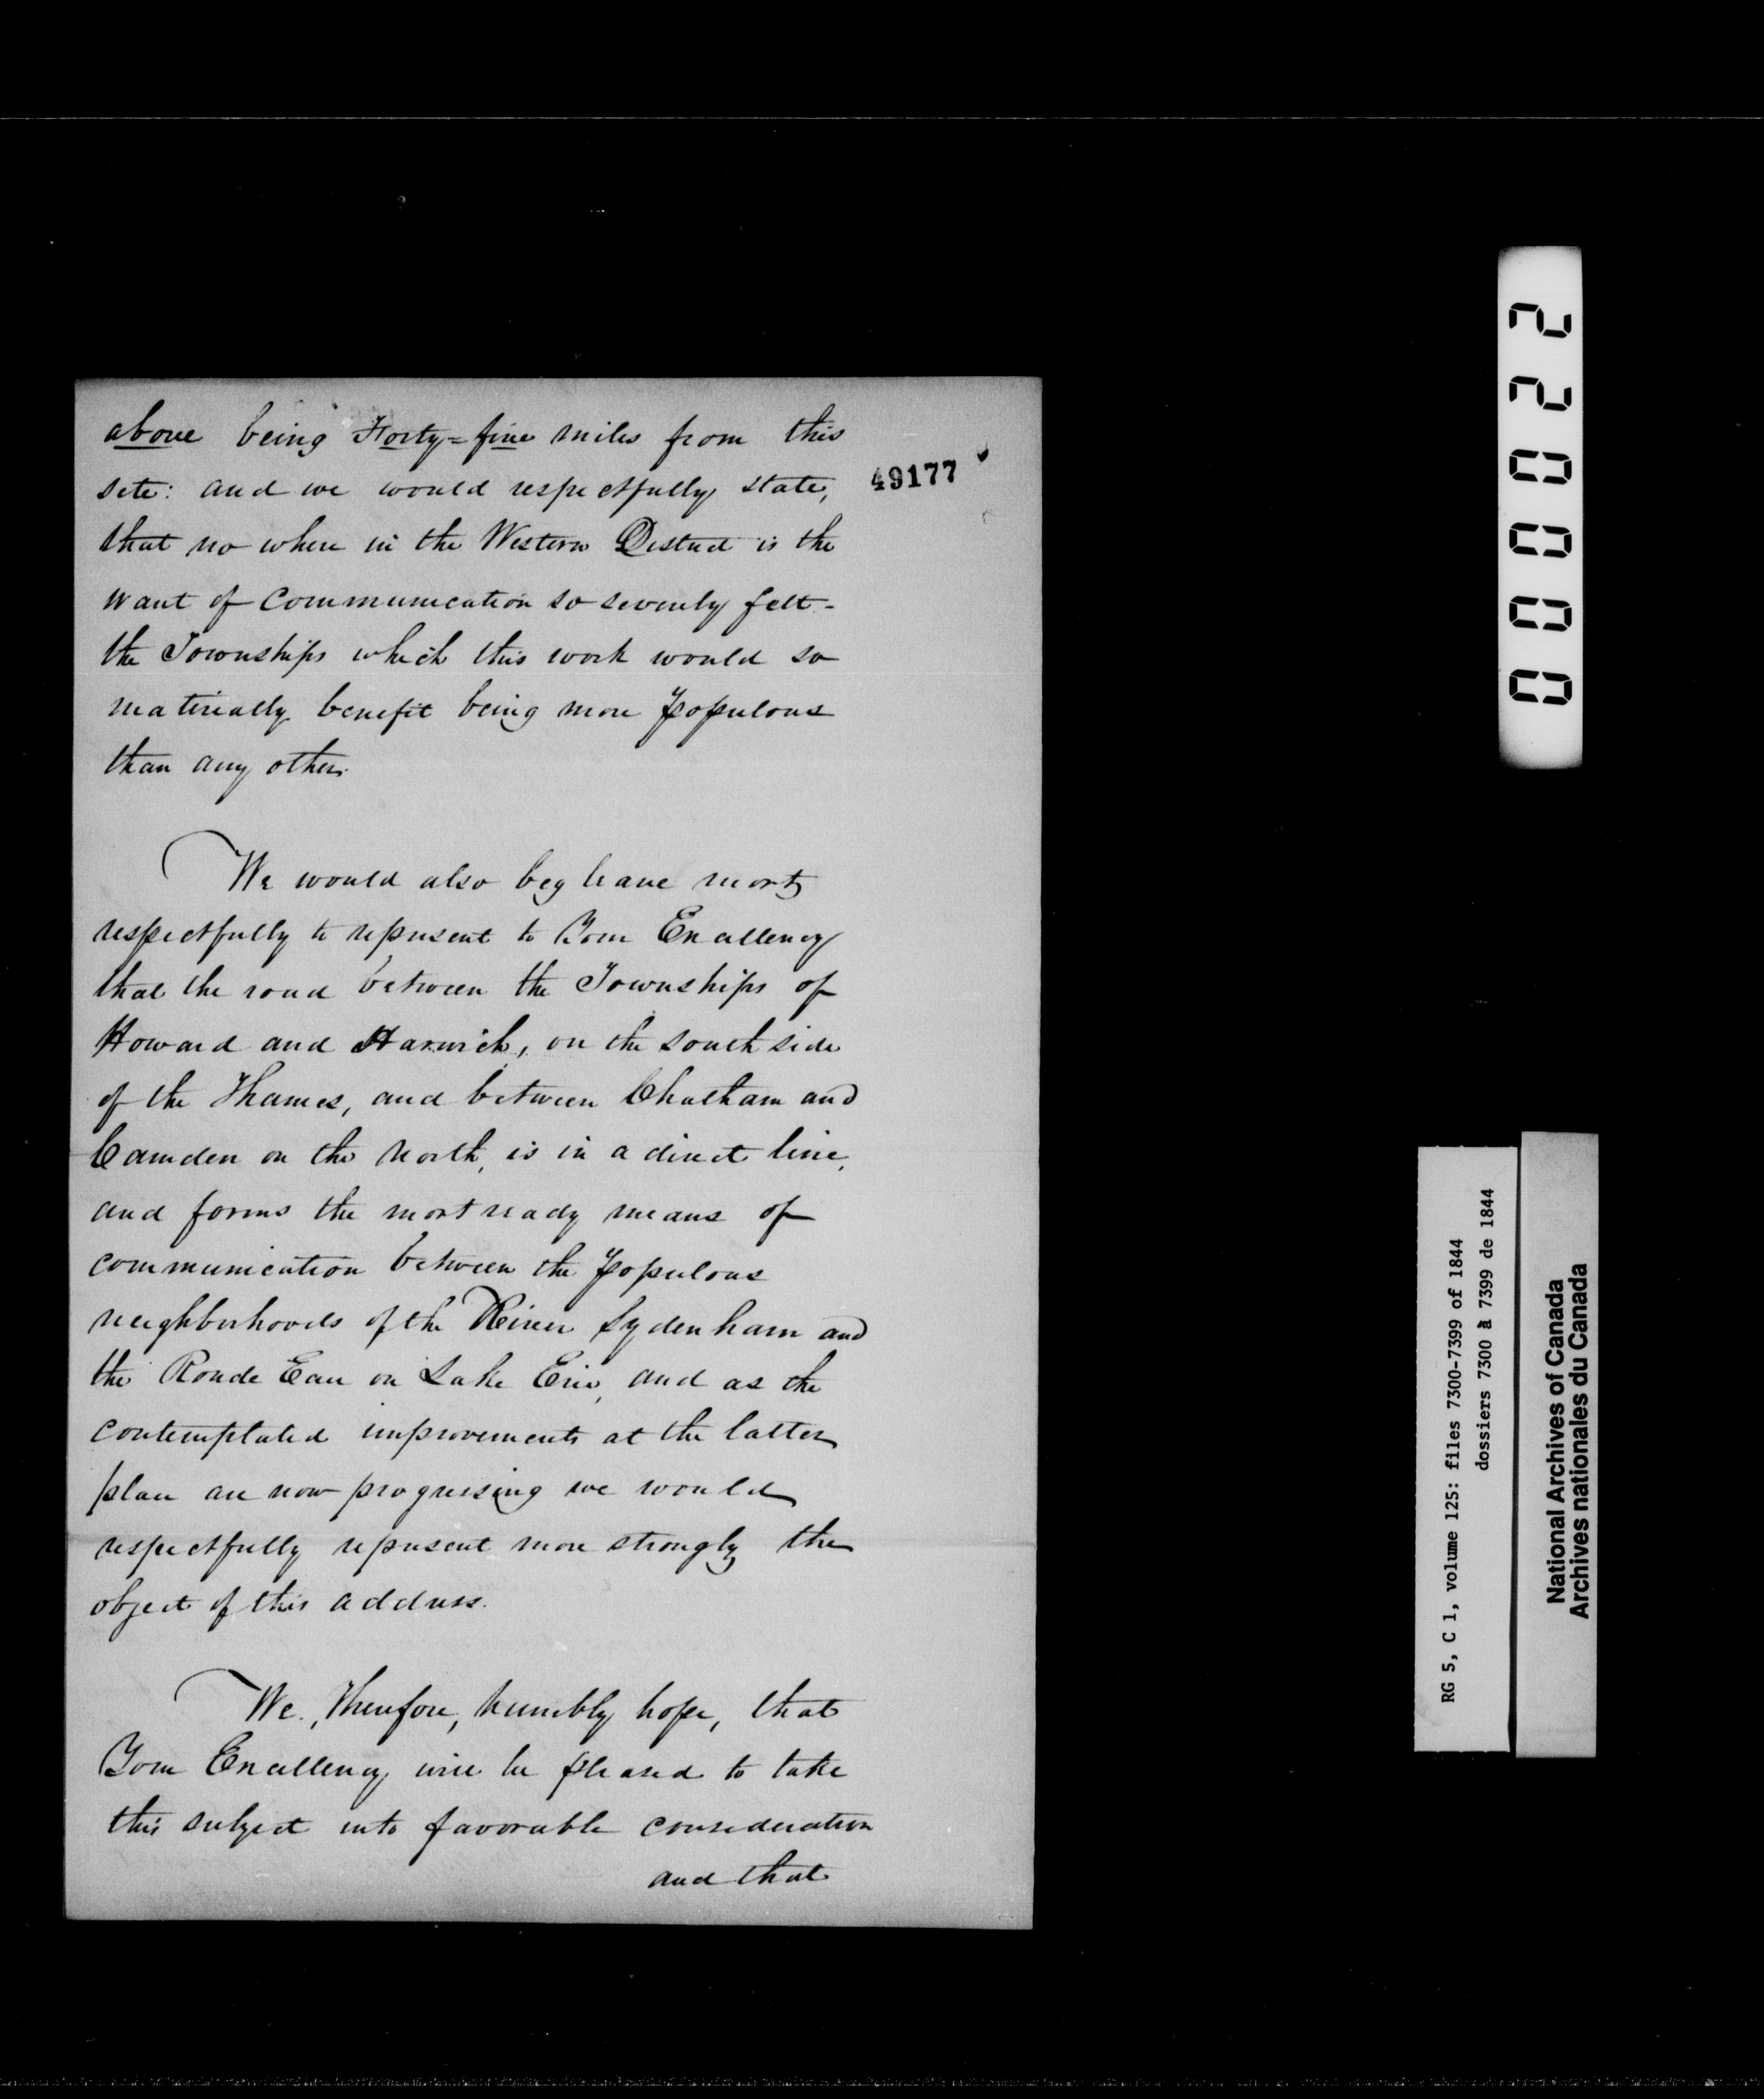 above being Forty=five miles from this
site: and we would respectfully state,
49177
that no where in the Western District is the
want of Communication so severely felt -
the Townships which this work would so
materially benefit being more populous
than any other.
We would also beg leave most
respectfully to represent to Your Excellency
that the road between the Townships of
Howard and Harwich, on the south side
of the Thames, and between Chatham and
Camden on the North, is in a direct line,
and forms the most ready means of
communication between the populous
neighborhoods of the River Sydenham and
the Ronde Eau on Lake Erie, and as the
contemplated improvements at the latter
place are now progressing we would
respectfully represent more strongly the
object of this address.
We, Therefore, humbly hope, that
Your Excellency will be pleased to take
this subject into favorable consideration
and that
000022
RG 5, C 1, volume 125: files 7300-7399 of 1844
dossiers 7300 à 7399 de 1844
National Archives of Canada
Archives nationales du Canada